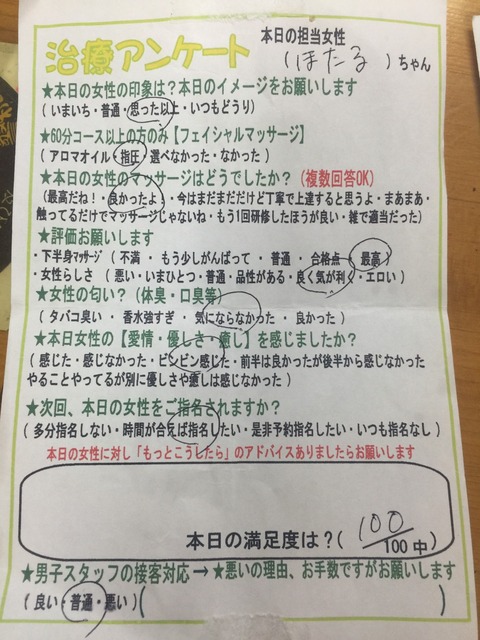 治療アンケート
本日の担当女性
(ほたる)ちゃん
★本日の女性の印象は?本日のイメージをお願いします
(いまいち・普通・思った以上・いつもどうり)
★60分コース以上の方のみ【フェイシャルマッサージ】
(アロマオイル・指圧・選べなかった・なかった)
★本日の女性のマッサージはどうでしたか?(複数回答OK)
(最高だね!・良かったよ・今はまだまだだけど丁寧で上達すると思うよ・まあまあ・
触ってるだけでマッサージじゃないね・もう1回研修したほうが良い・雑で適当だった)
★評価お願いします
・下半身マッサージ(不満・もう少しがんばって・普通・合格点・最高)
・女性らしさ(悪い・いまひとつ・普通・品性がある・良く気が利く・エロい)
★女性の匂い?(体臭・口臭等)
(タバコ臭い・香水強すぎ・気にならなかった・良かった)
★本日女性の【愛情・優しさ・癒し】を感じましたか?
(感じた・感じなかった・ビンビン感じた・前半は良かったが後半から感じなかった
やることやってるが別に優しさや癒しは感じなかった)
★次回、本日の女性をご指名されますか?
(多分指名しない・時間が合えば指名したい・是非予約指名したい・いつも指名なし)
本日の女性に対し「もっとこうしたら」のアドバイスありましたらお願いします
本日の満足度は?(100/100中)
★男子スタッフの接客対応→★悪いの理由、お手数ですがお願いします
(良い・普通・悪い)( )